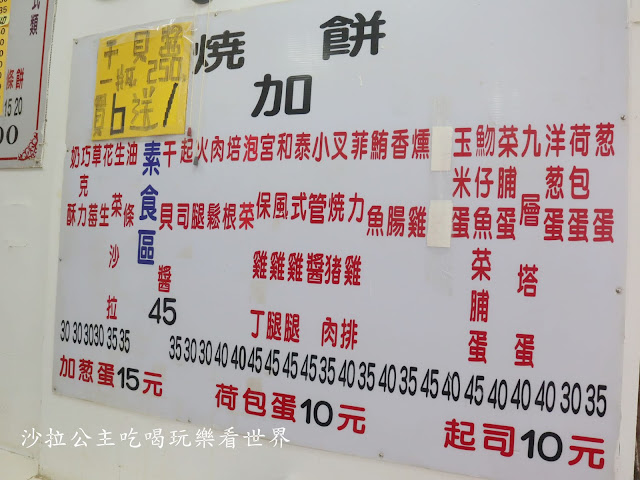 式類
條餅
15 20
00
干貝醬
一瓶250
買6送1
燒餅
加
奶酥
巧克力
草莓
花生
生菜沙拉
油條
素食區
干貝醬
45
起司
火腿
肉鬆
培根
泡菜
宮保雞丁
和風雞腿
泰式雞腿
小管醬
叉燒豬肉
菲力雞排
鮪魚
香腸
燻雞
玉米蛋
魩仔魚菜脯蛋
菜脯蛋
九層塔蛋
洋葱蛋
荷包蛋
葱蛋
30 30 30 30 35 35
35 30 30 40 40 45 45 45 45 35 40 35 40 35 45 40 40 45 40 40 40 30 35
加葱蛋15元
荷包蛋10元
起司10元
沙拉公主吃喝玩樂看世界